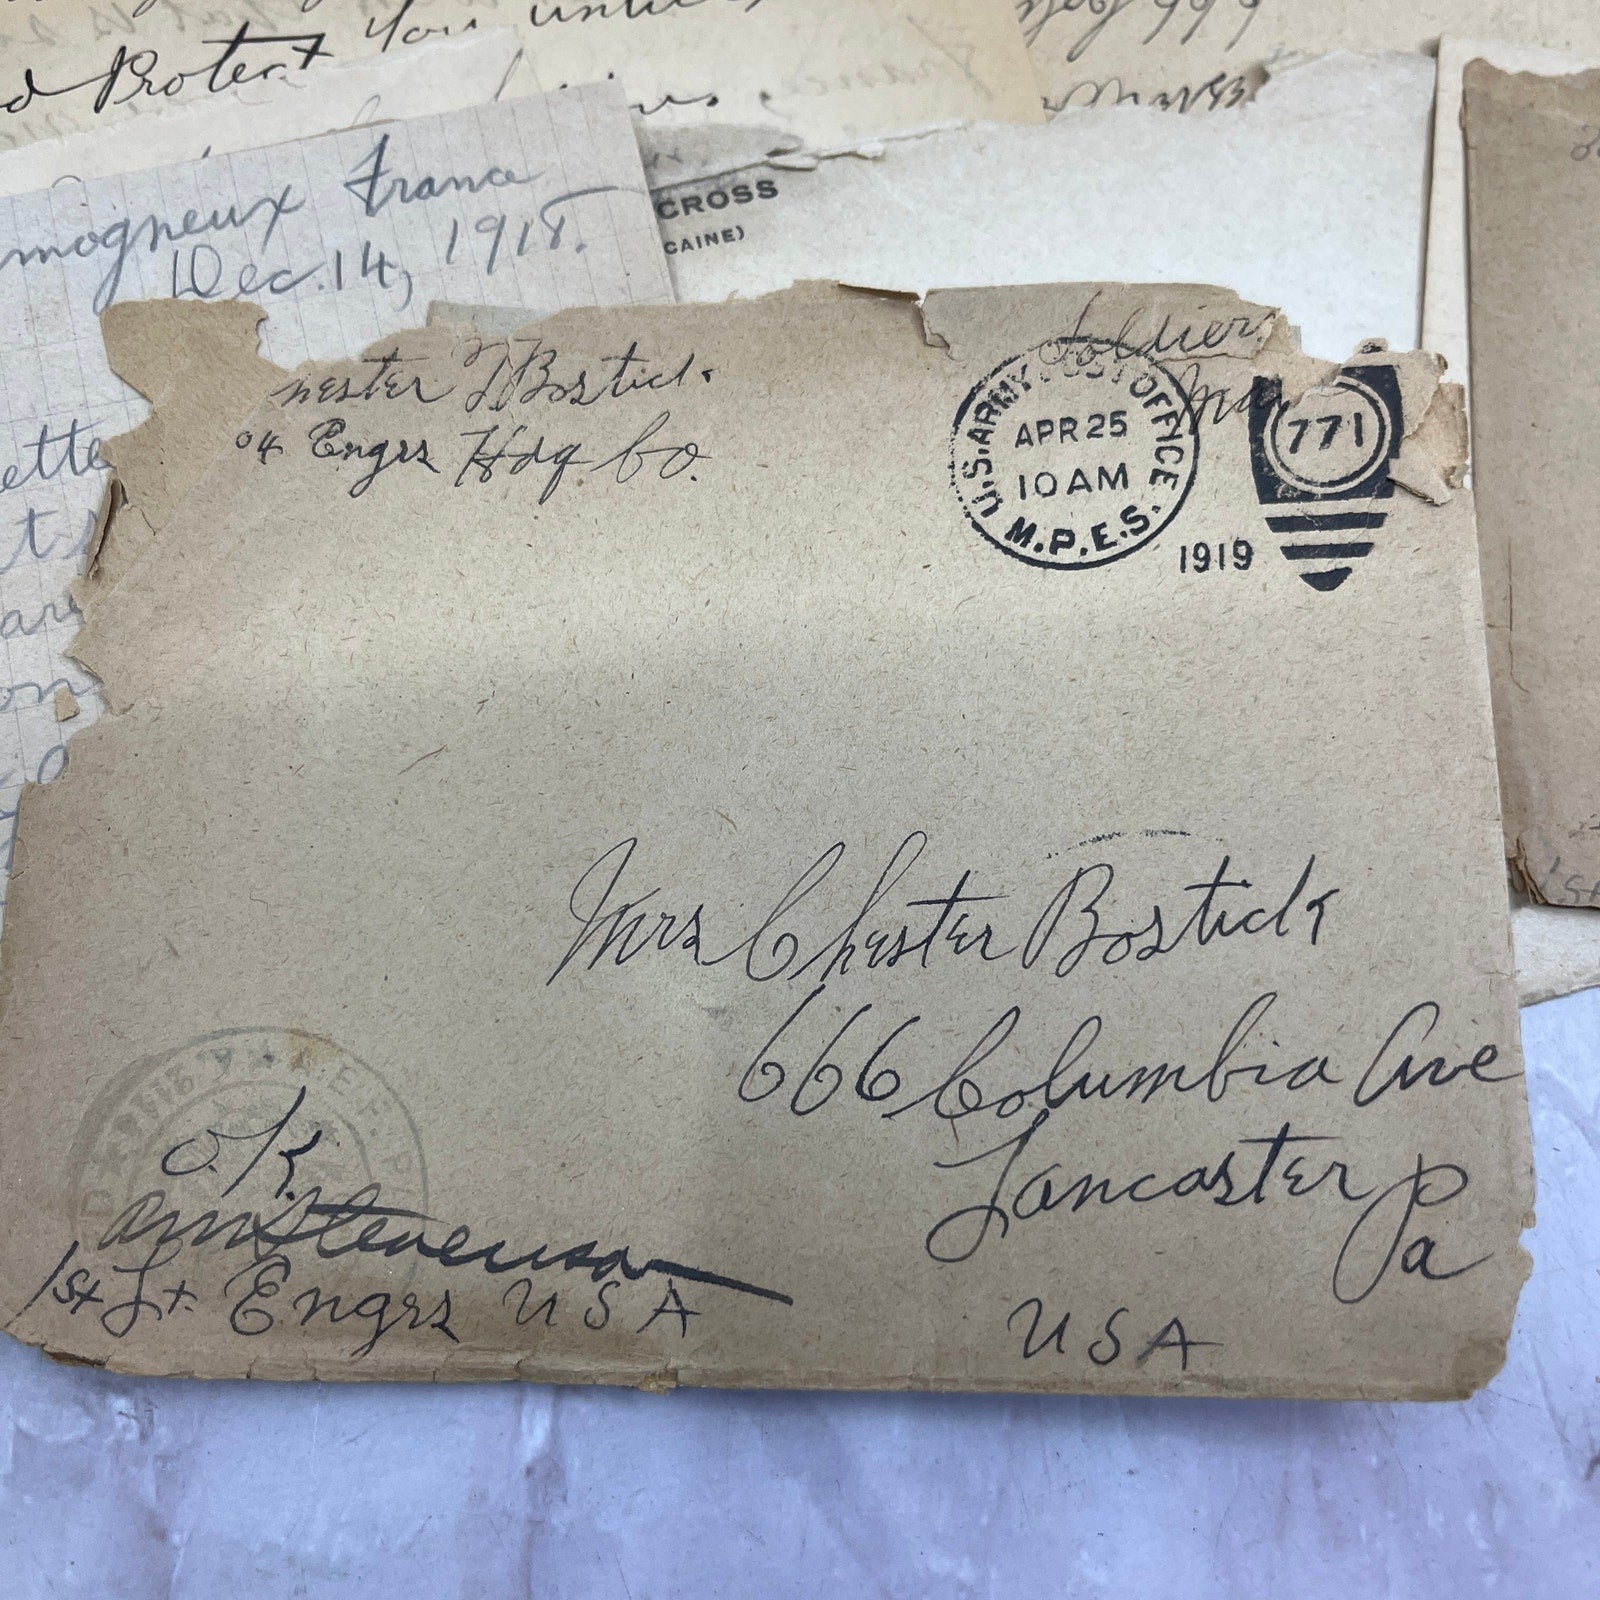 Protect You until
mogneux France
Dec. 14, 1918.
CROSS
CAINE)
ette
are
on
hester T Bostick.
04 Engrs Hdq Co.
Soldiers
Mai
U.S. ARMY POST OFFICE
APR 25
10 AM
M.P.E.S.
1919
771
Mrs Chester Bostick
666 Columbia Ave
Lancaster Pa
USA
O.K.
Stevenson
1st Lt. Engrs USA
A.E.F.